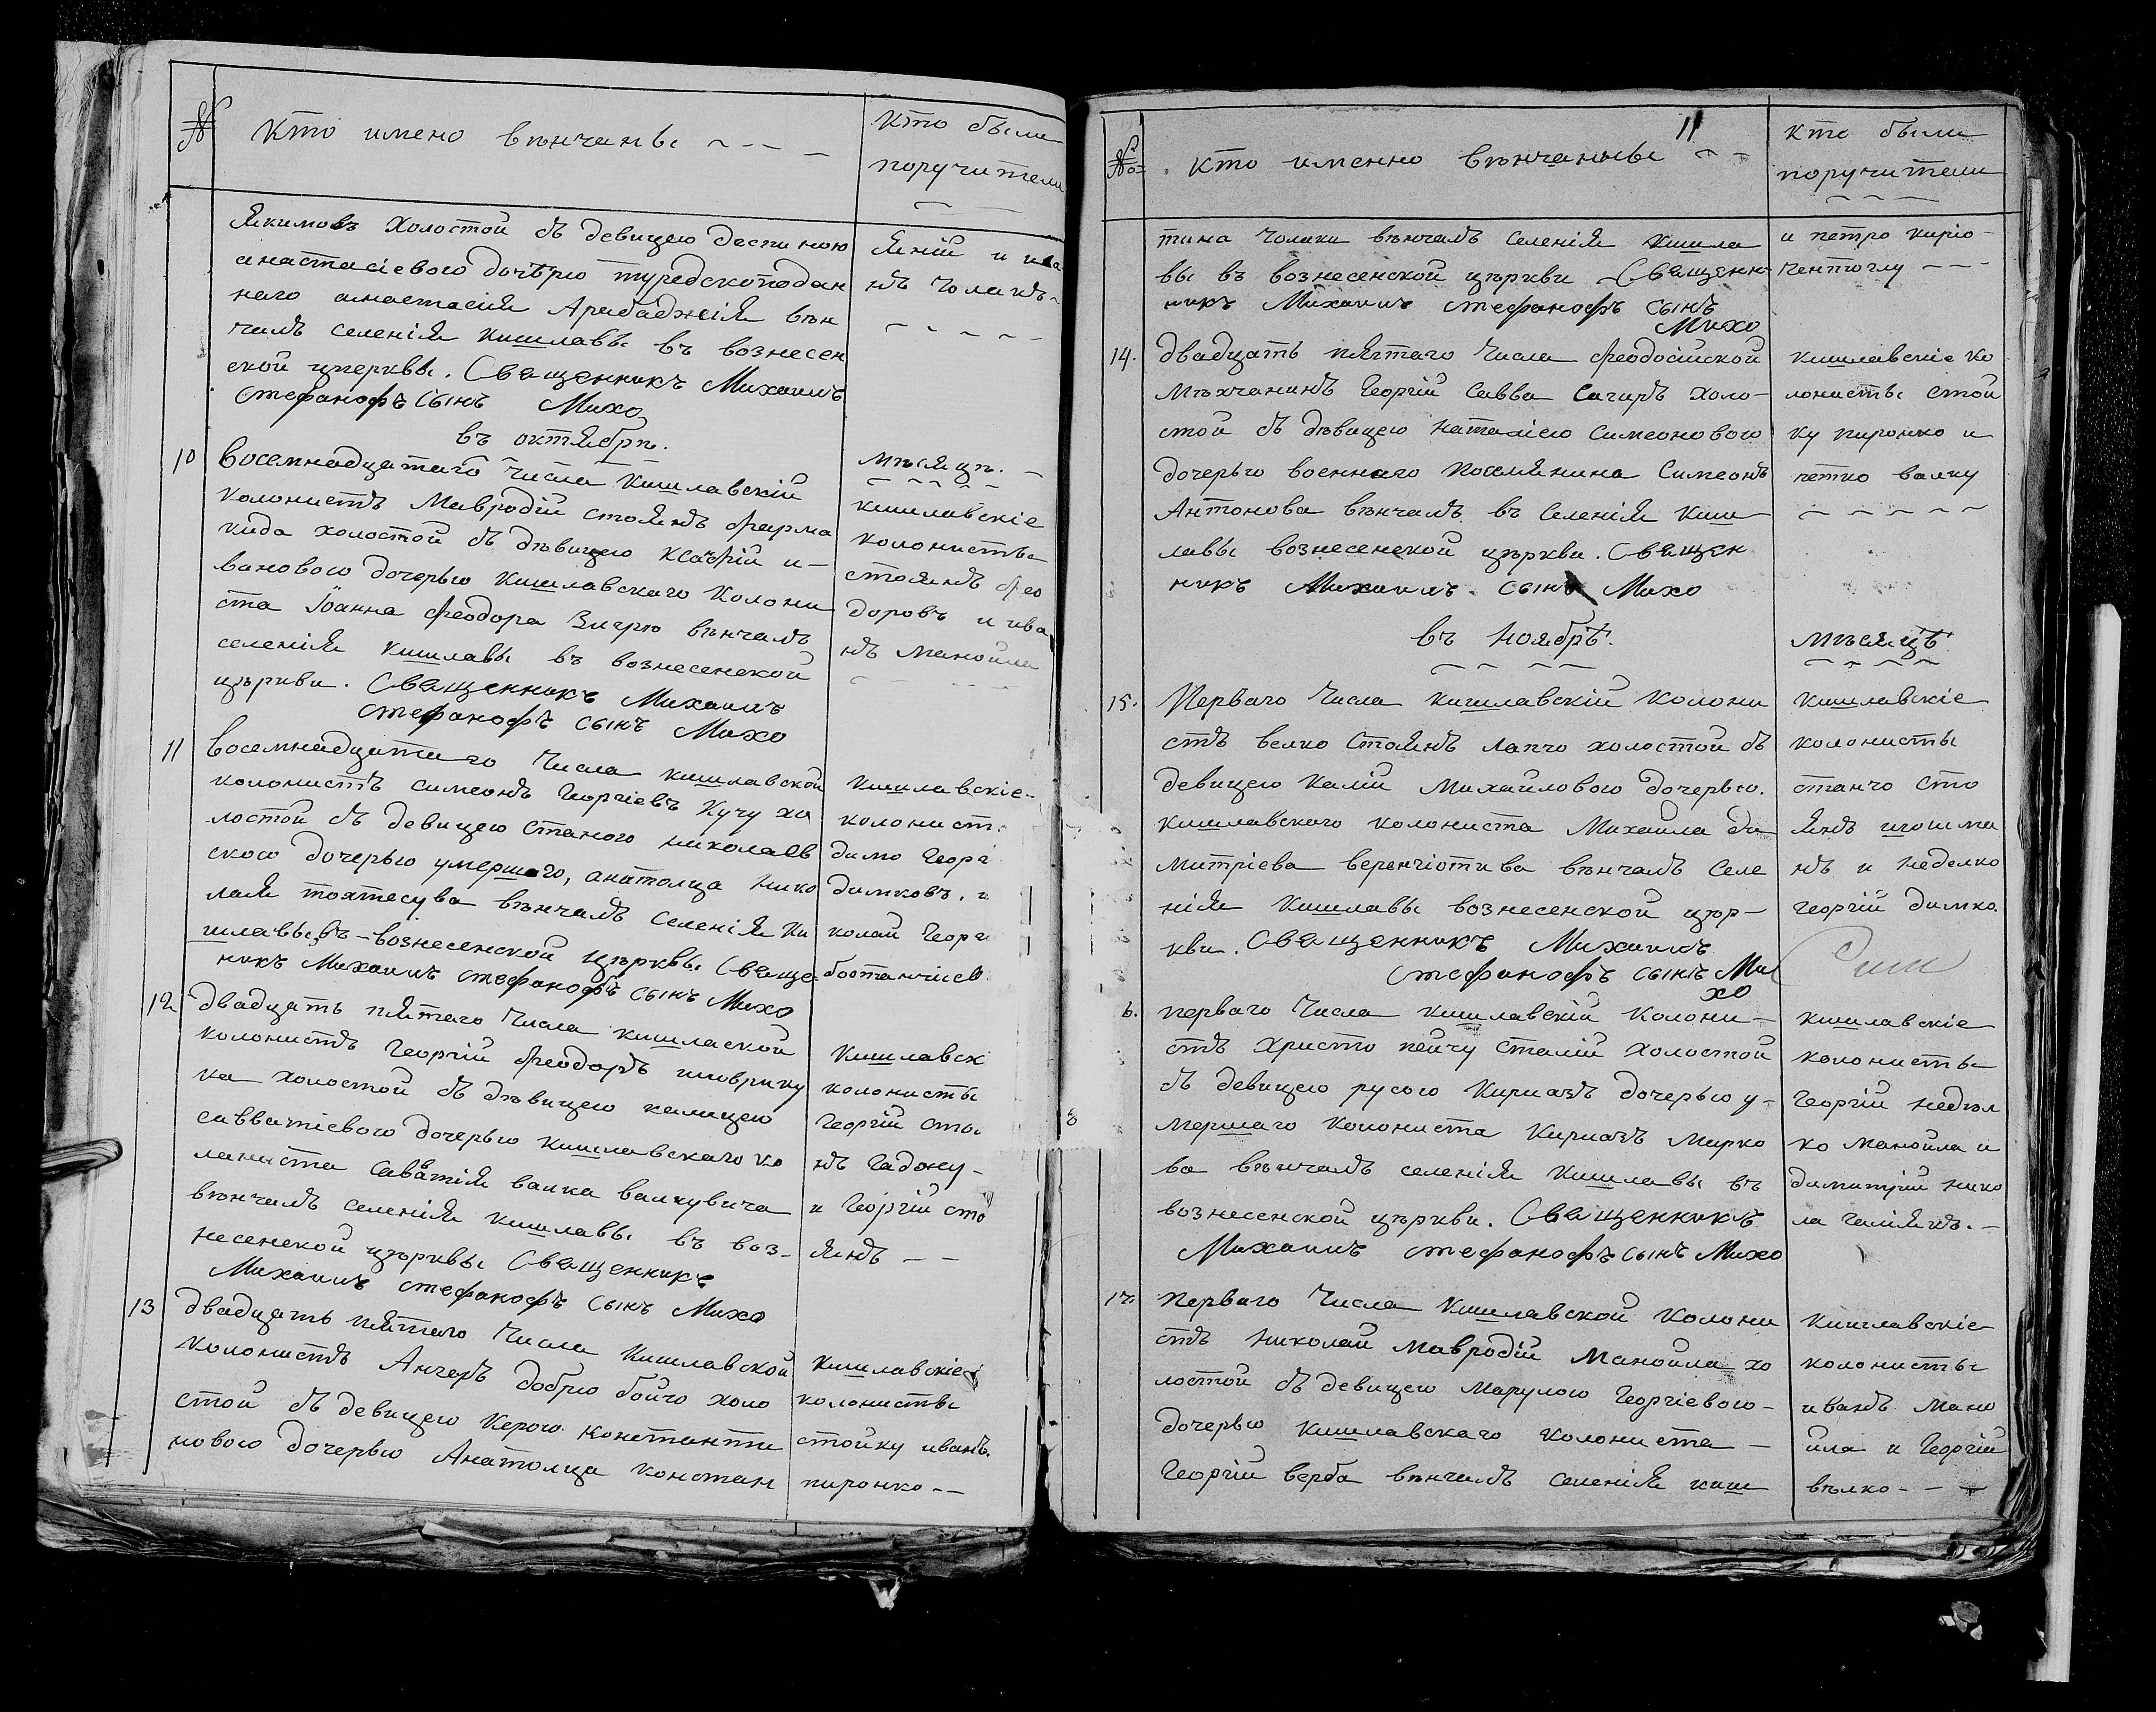 №
Кто имено вѣнчаны
Кто были
поручители
Якимовъ холостой съ девицею деспиною
анастасіевого дочѣрю туредскоподан
наго анастасія Арабаджія вѣн
чалъ селенія Кишлавы въ вознесен
ской церквы. Священникъ Михаилъ
Стефанофъ сынъ Михо
Яній и ива
нъ Чолакъ
въ октябрѣ.
мѣсяцѣ.
10
Восемнадцатаго Числа Кишлавскій
колонистъ Мавродій стоянъ фарма
кида холостой съ дѣвицею Ксафій и-
вановою дочерью Кишлавскаго Колони
ста Іоанна Феодора вѣнчалъ
селенія Кишлавы въ вознесенской
цѣркви. Священникъ Михаилъ
Стефанофъ сынъ Михо
кишлавскіе
колонисты
стоянъ фео
доровъ и ива
нъ Манойла
11
Восемнадцатаго Числа кишлавской
колонистъ симеонъ Георгіевъ Кучу хо
лостой съ девицею станою николаев
скою дочерью умершаго, анатолца нико
лая вѣнчалъ селенія Ки
шлавы, въ-вознесенской цѣрквы Свяще
никъ Михаилъ Стефанофъ сынъ Михо
Кишлавскіе-
колонист
димо Георг
димковъ, и
колай Георг
12
двадцать пятаго Числа кишлаской
колонистъ Георгій феодоръ
ка холостой съ дѣвицею калицею
савватіевого дочерью кишлавскаго ко
ланиста Саватія валка валкувича
вѣнчалъ селенія кишлавы въ воз-
несенской цѣрквы Священникъ
Михаилъ Стефанофъ сынъ Михо
Кишлавск
колонисты
Георгій сто
нъ Гадожу-
и Георгій сто
янъ
13
двадцать пятаго Числа Кишлавской
колонистъ Ангелъ добрю бойчо холо
стой съ девицею Керою константи
нового дочерью Анатолца констан
Кишлавскіе
колонисты
стойку иванъ.
пиронко
11
№
Кто именно вѣнчанны
Кто были
поручители
тина Чолаки вѣнчалъ селенія Кишла
вы въ вознесенской цѣркви Священ
никъ Михаилъ Стефанофъ сынъ
Михо
и петро киріо-
14.
двадцать пятаго Числа феодосійской
Мѣхчанинъ Георгій Савва Сачиръ холо-
стой съ дѣвицею наталіею Симеонового
дочерью военнаго поселянина Симеонъ
Антонова вѣнчалъ въ селенія Киш
лавы вознесенской цѣркви. Священ
никъ Михаилъ сынъ Михо
кишлавскіе ко
лонисты стой
ку пиронко и
петко валку
въ Ноябрѣ.
мѣсяцѣ
15.
Перваго Числа кишлавскій Колони
стъ велко Стоянъ лапчо холостой съ
девицею калій Михайлового дочерью.
кишлавского колониста Михаила ди
митріева вѣнчалъ селе
нія Кишлавы вознесенской цѣр-
кви. Священникъ Михаилъ
Стефанофъ сынъ Ми
хо
Кишлавскіе
колонисты
станчо сто
янъ
нъ и неделко
георгій димко.
6.
перваго Числа кишлавскій Колони-
стъ Христо пейчу сталій холостой
съ девицею русою Кириазъ дочерью у-
мершаго колониста Кириазъ Мирко
ва вѣнчалъ селенія Кишлавы въ
вознесенской цѣркви. Священникъ
Михаилъ Стефанофъ сынъ Михо
кишлавскіе
колонисты
Георгій недѣл
ко манойла и
димитрій нико
ла
17.
перваго Числа Кишлавской Колони
стъ Николай Мавродій Манойла хо
лостой съ девицею Марулою Георгіевого-
дочерью кишлавскаго колониста -
Георгій верба вѣнчалъ селенія киш
Кишлавскіе
колонисты
иванъ мано
йла и Георгій
вѣлко